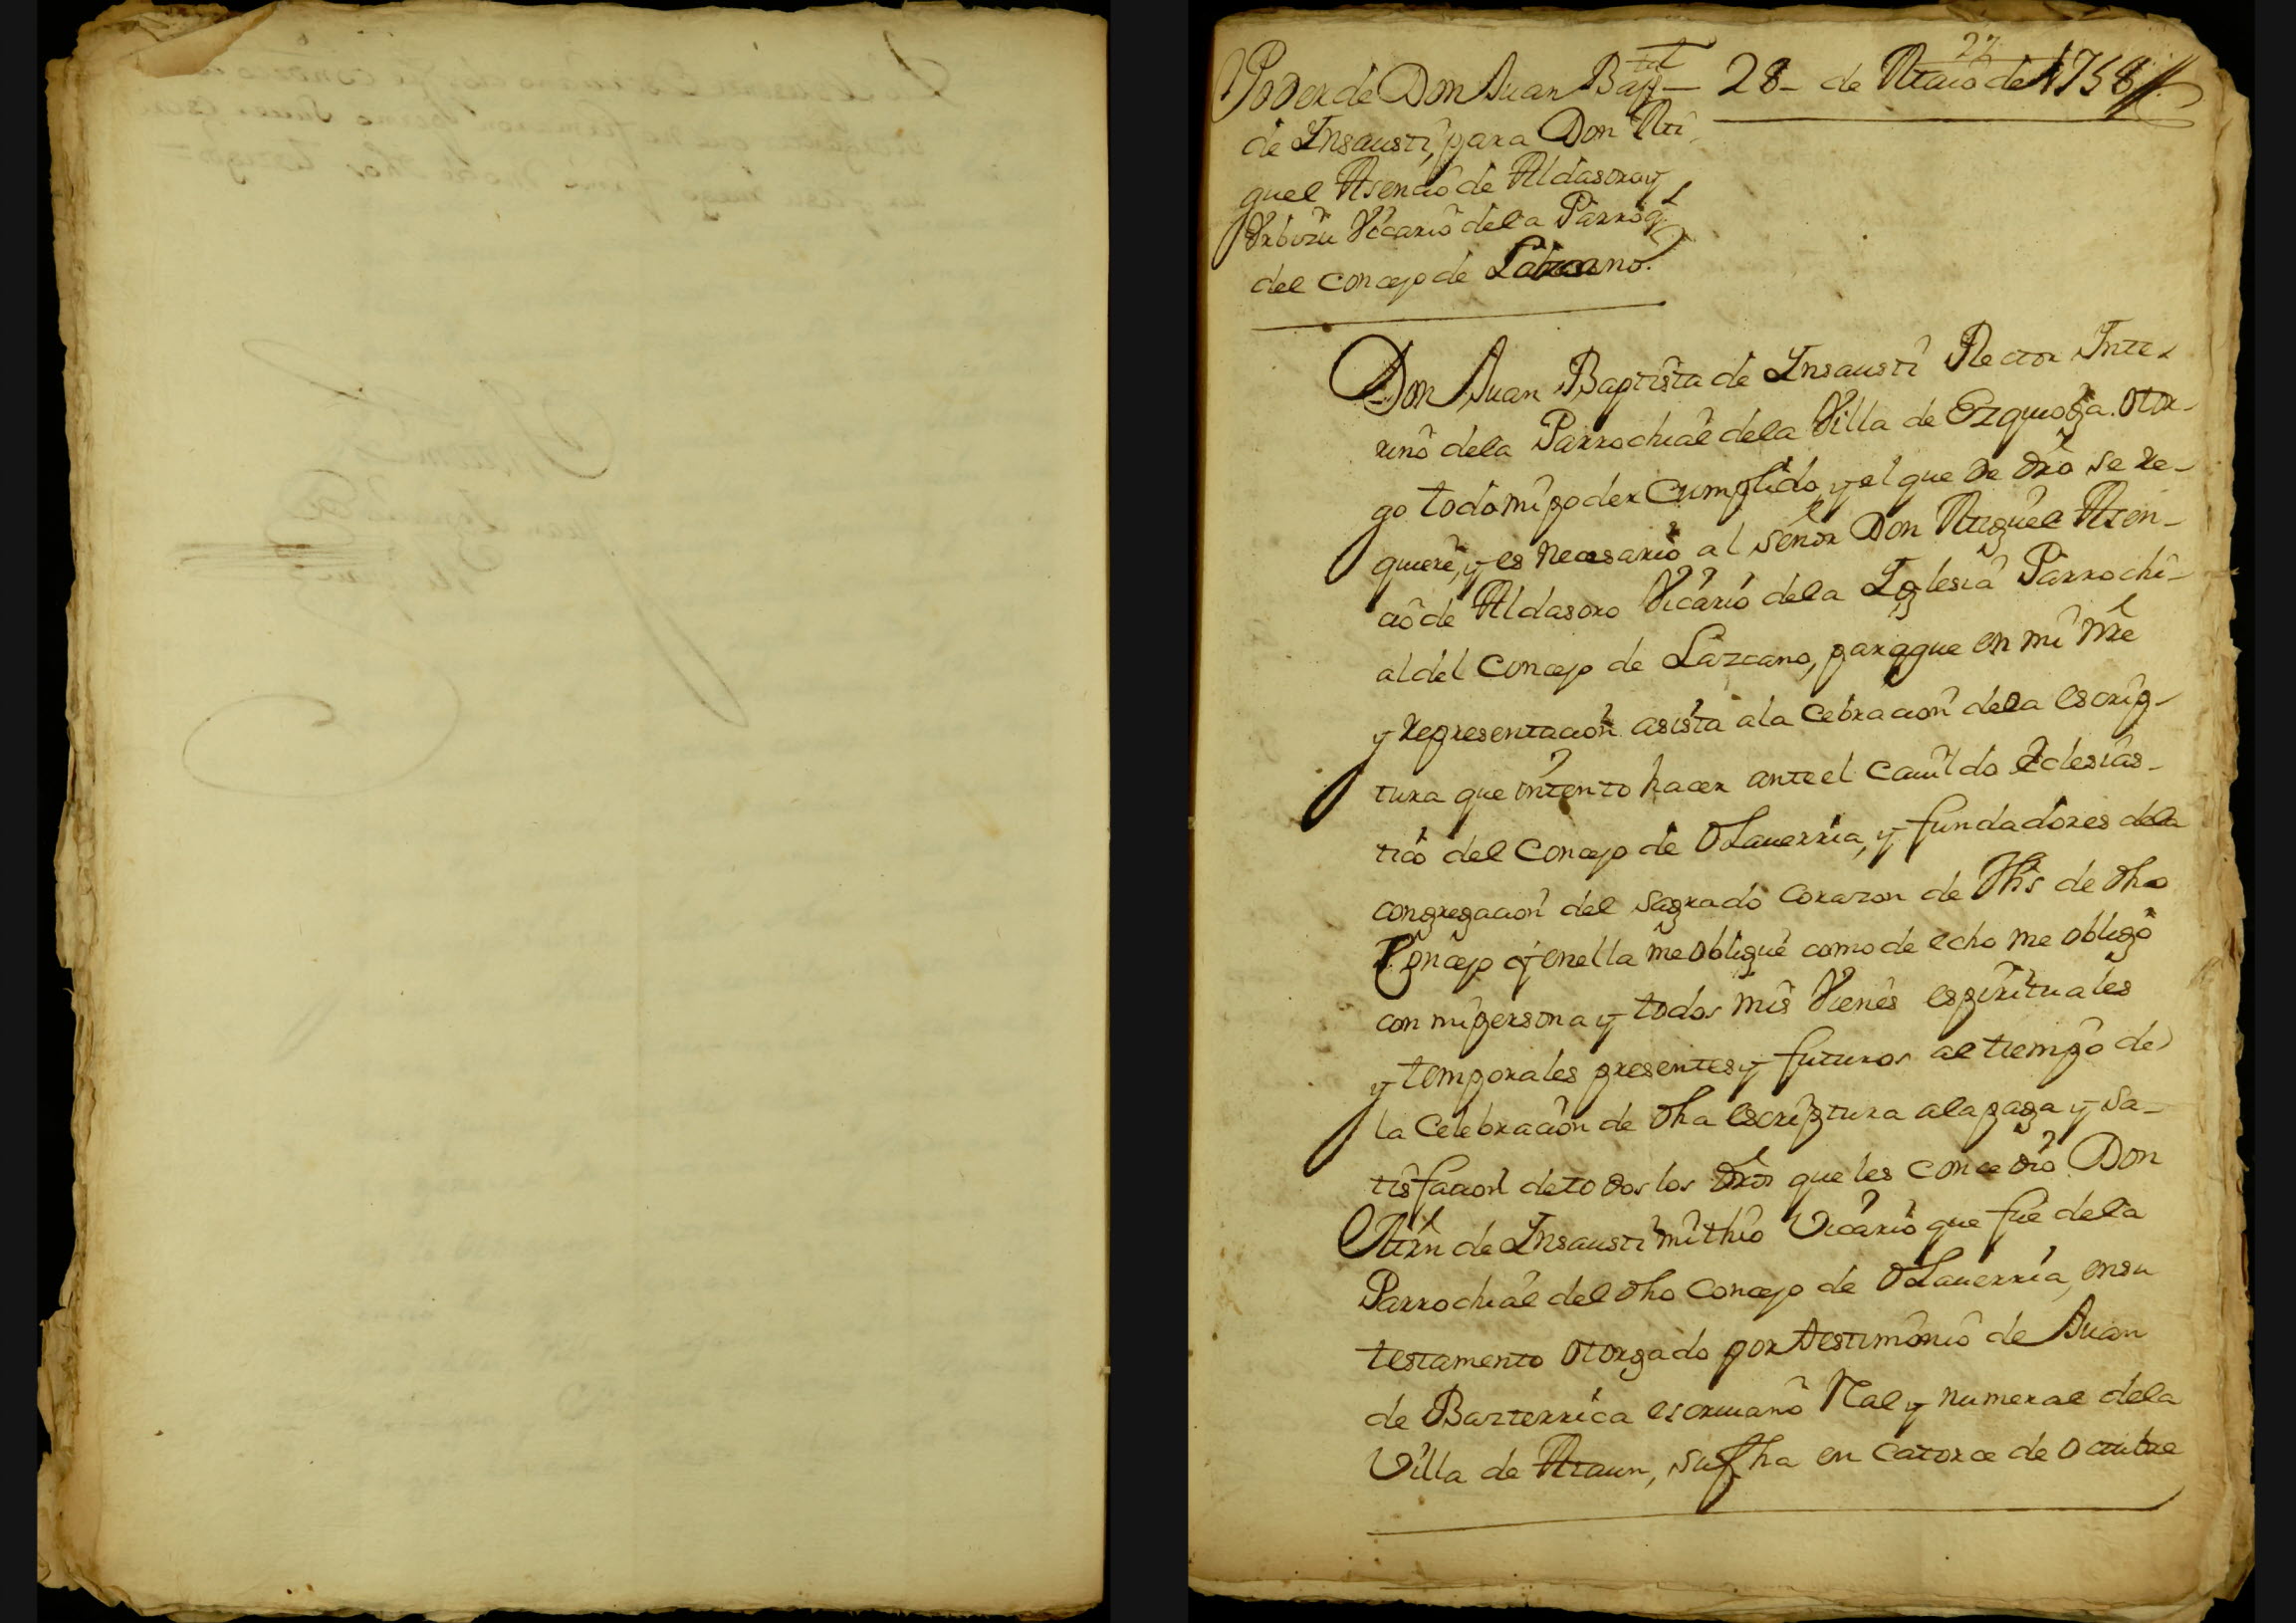 27
Poder de Don Juan Bapta — 28 - de Maio de 1758
de Insausti, para Don Mi
guel Asencio de Aldasoro y
Urbizu Vicario dela Parroql
del concejo de Lazcano.
Don Juan Baptista de Insausti Rector Inte-
rino dela Parrochial dela Villa de Ezquioga. otor-
go todo mi poder cumplido, y el que de dro se re-
quiere, y es necesario al señor Don Miguel Asen-
cio de Aldasoro Vicario dela Iglesia Parrochi-
al del concejo de Lazcano, paraque en mi nre
y representacion asista ala cebracion dela escrip-
tura que intento hacer ante el cavildo Eclesias-
tico del concejo de Olaverria, y fundadores dela
congregacion del sagrado corazon de Jhs de dho
Concejo q̃ enella me obligue como de echo me obligo
con mi persona y todos mis Vienes espirituales
y temporales presentes y futuros al tiempo de
la celebracion de dha escriptura ala paga y sa-
tisfacion de todos los dros que les concedio Don
Mrn de Insausti mi thio Vicario que fue dela
Parrochial del dho concejo de Olaverria, en su
testamento otorgado por testimonio de Juan
de Barterrica escrivano Ral y numeral dela
Villa de Ataun, su fha en catorce de octubre